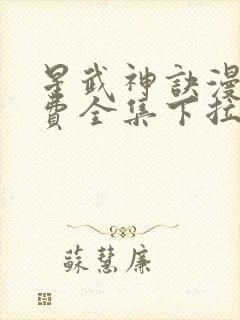 星武神訣漫
費全集下拉
蘇慧廉